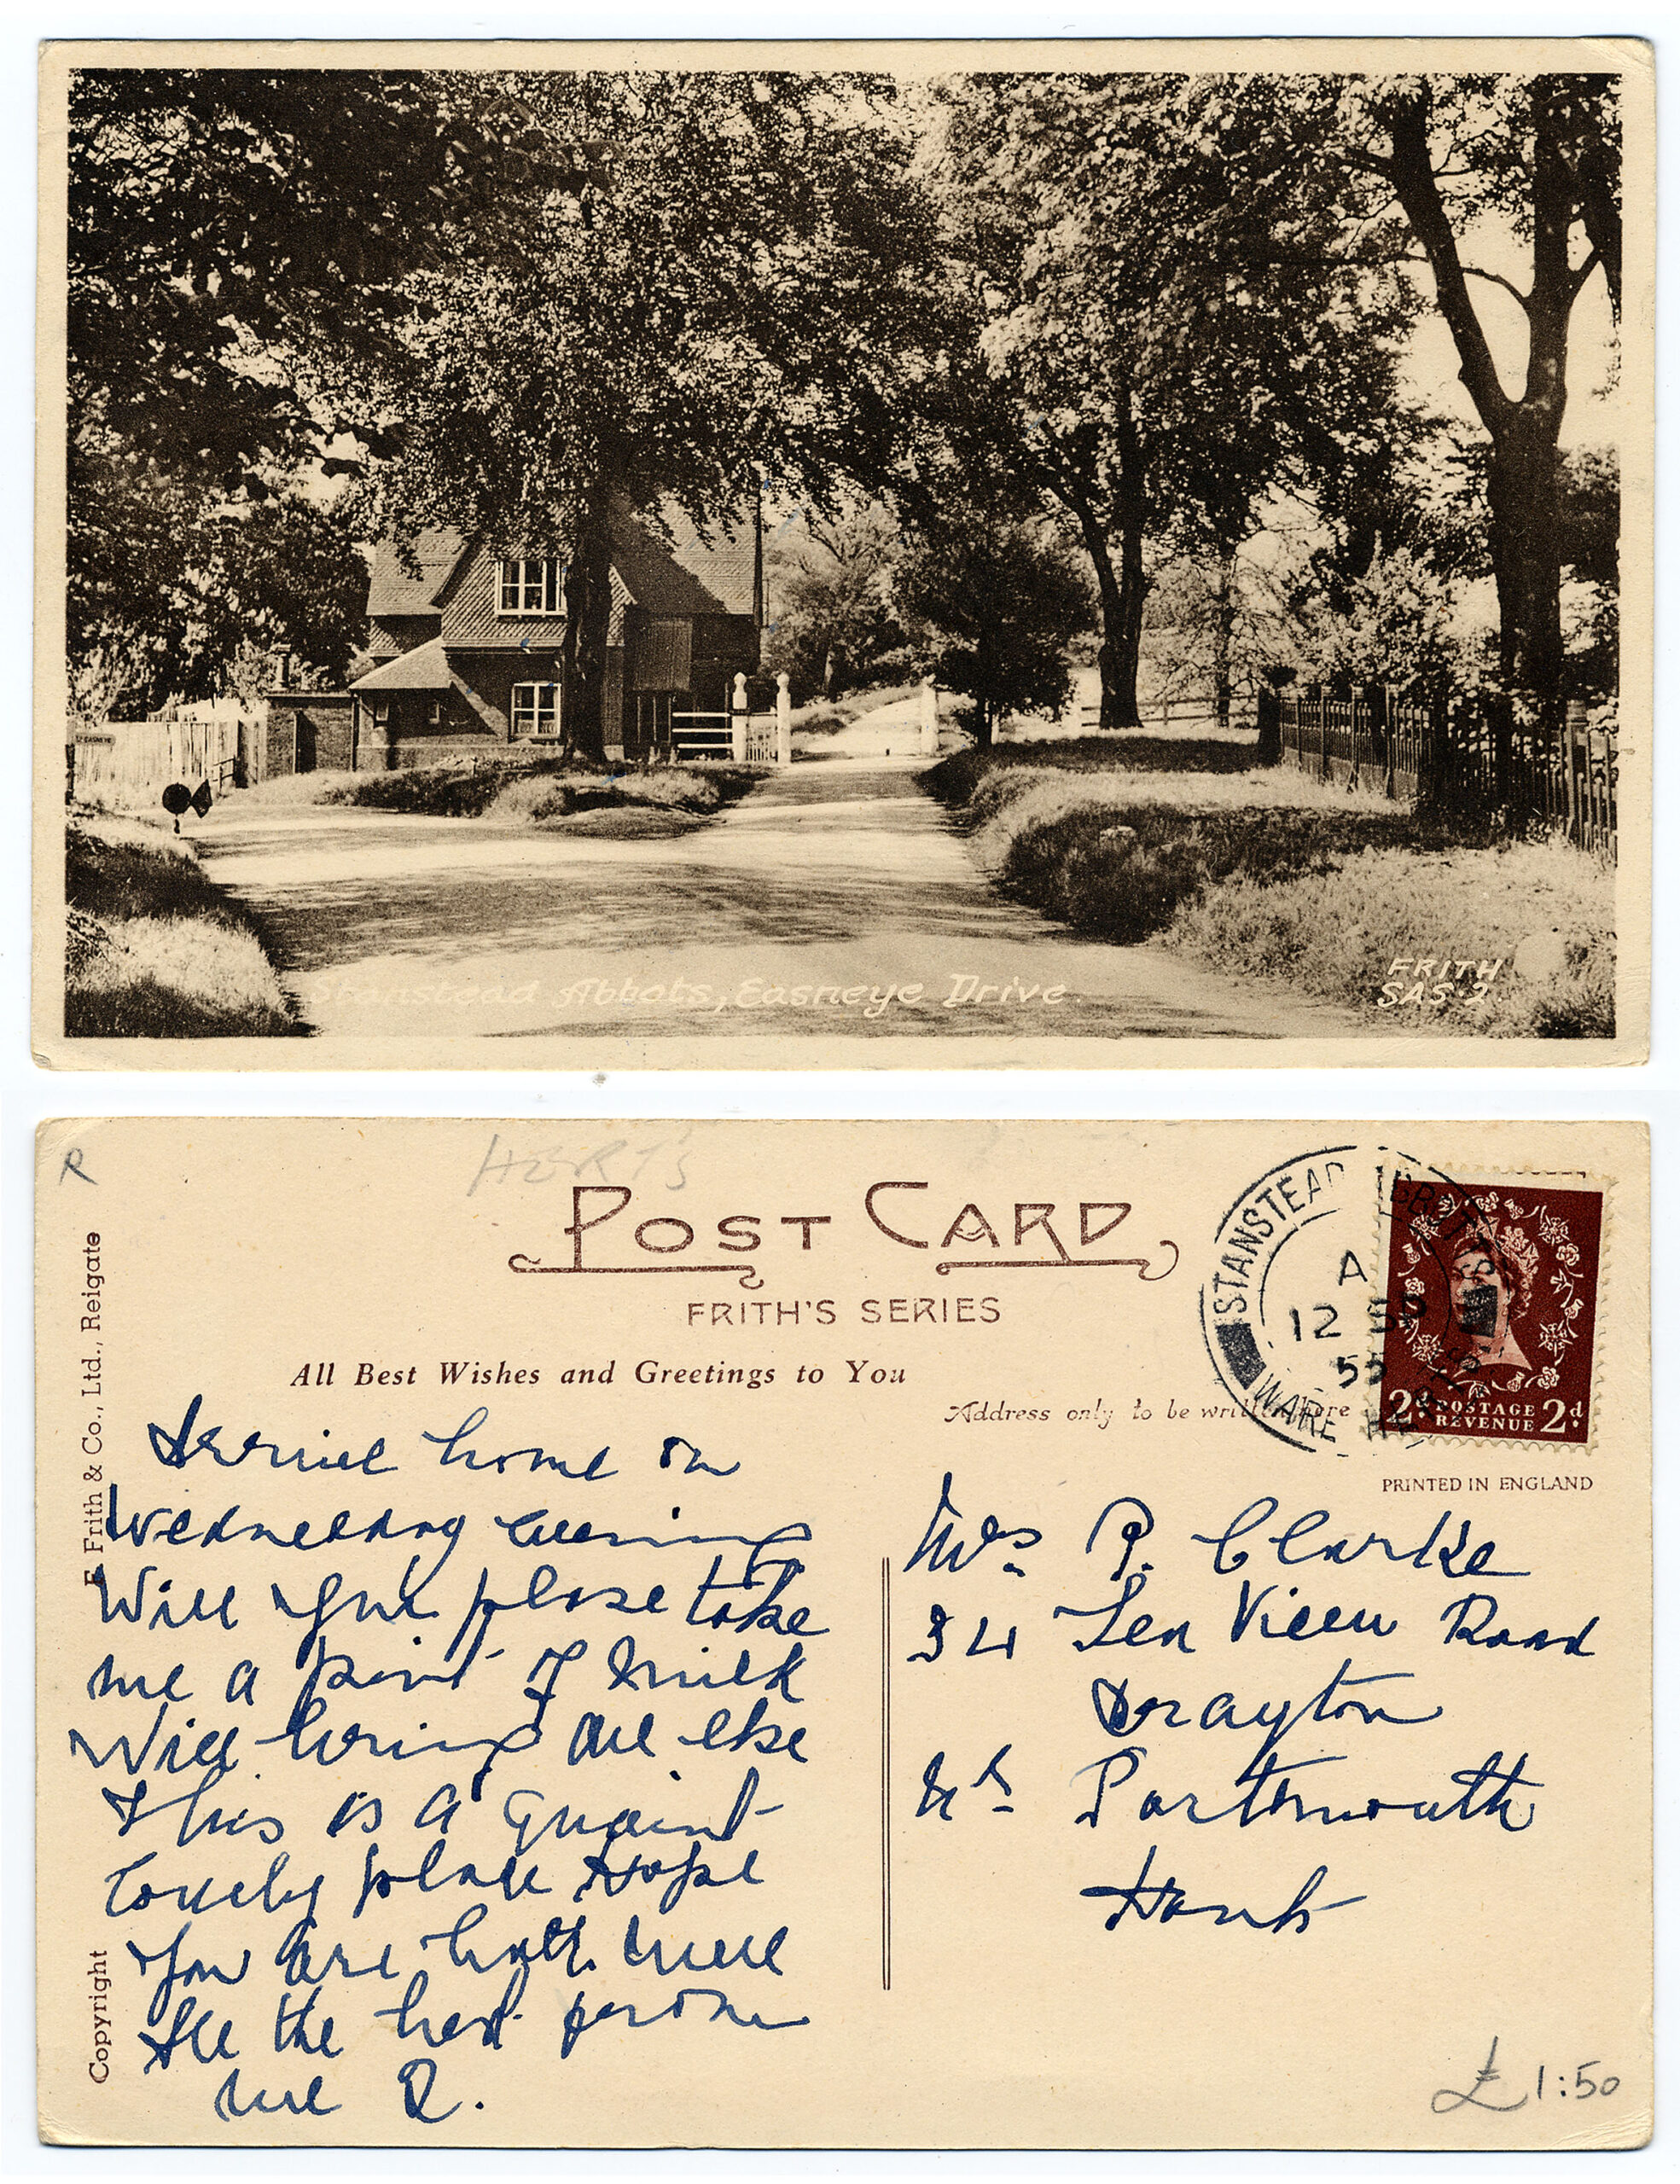 Sr EASNEYE
Stanstead Abbots, Easneye Drive
FRITH
SAS.2.
R
HERTS
POST CARD
FRITH'S SERIES
All Best Wishes and Greetings to You
Address only to be written here
STANSTEAD ABBOTTS
A
12 SP
55
WARE HERTS
2d POSTAGE REVENUE 2d
PRINTED IN ENGLAND
F. Frith & Co., Ltd., Reigate
Copyright
Arrive home on
Wednesday evening
Will you please take
me a pint of milk
Will bring all else
This is a quaint
lovely place Hope
you are both well
All the best from
me R.
Mrs P. Clarke
34 Sea View Road
Drayton
Nr Portsmouth
Hants
£1:50